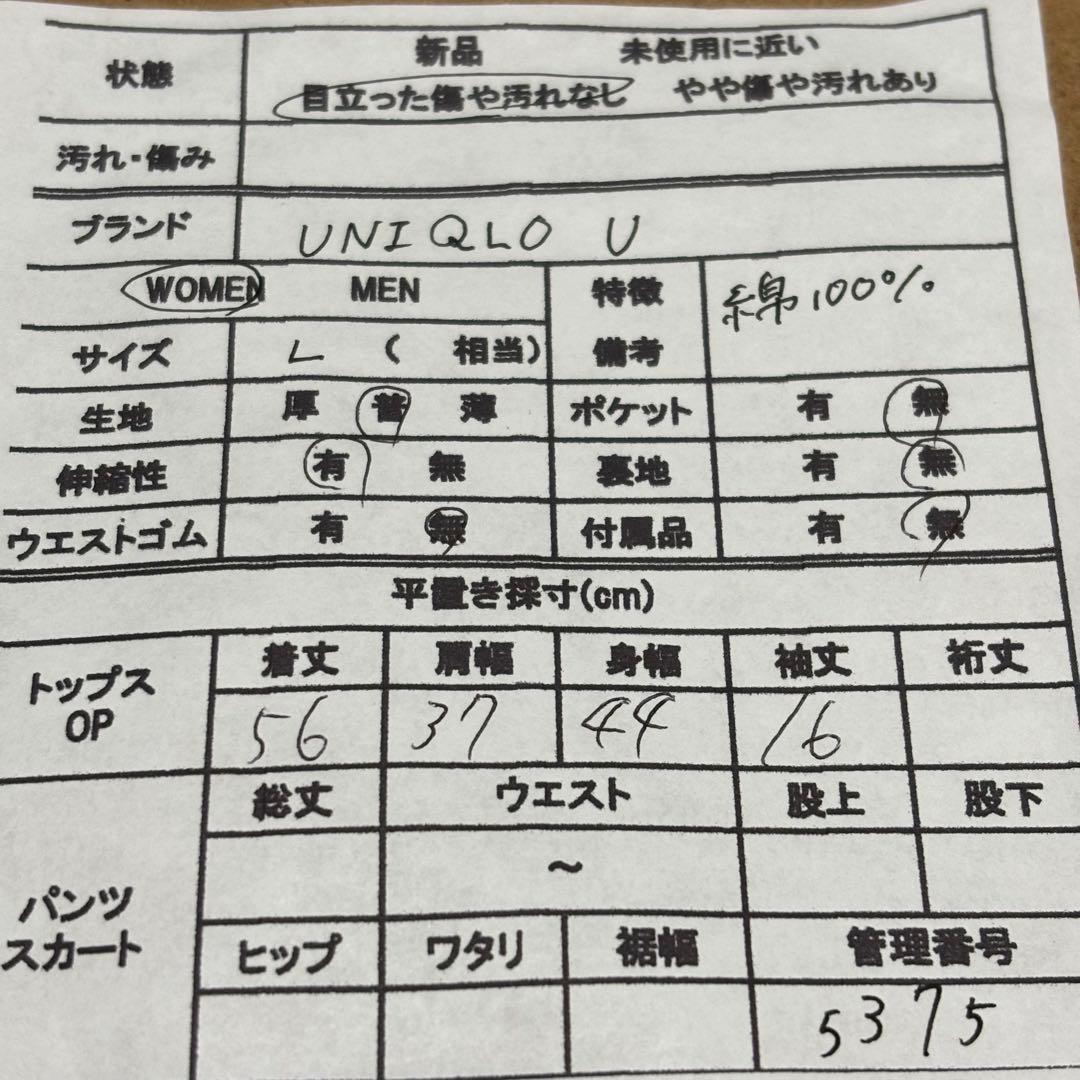 状態 新品 未使用に近い
目立った傷や汚れなし やや傷や汚れあり
汚れ・傷み
ブランド UNIQLO U
WOMEN MEN 特徴 綿100%
サイズ L ( 相当) 備考
生地 厚 普 薄 ポケット 有 無
伸縮性 有 無 裏地 有 無
ウエストゴム 有 無 付属品 有 無
平置き採寸(cm)
トップス OP 着丈 肩幅 身幅 袖丈 裄丈
56 37 44 16
パンツ スカート 総丈 ウエスト 股上 股下
~
ヒップ ワタリ 裾幅 管理番号
5375